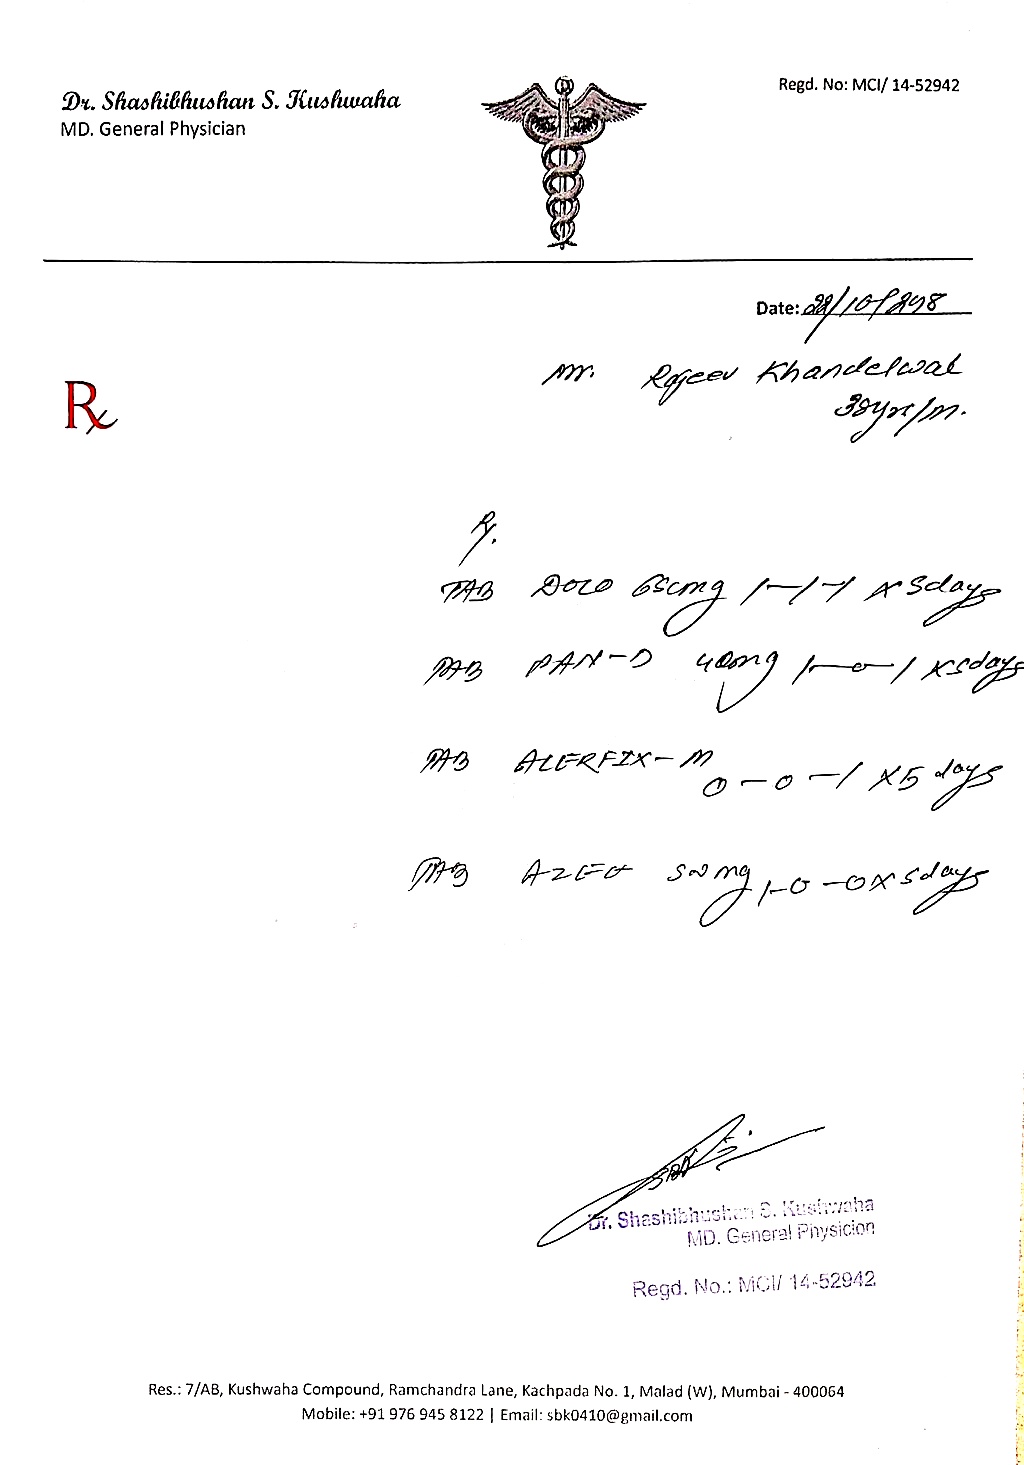 Dr. Shashibhushan S. Kushwaha
MD. General Physician
Regd. No: MCI/ 14-52942
Date: 22/10/
Mr. Rajeev Khandelwal
38yrs/m.
Rx
Rx.
TAB DOLO 650mg 1-1-1 x 5days
TAB PAN-D 40mg 1-0-1 x5days
TAB ALERFIX-M
0-0-1 x5 days
TAB 500mg 1-0-0x5days
Dr. Shashibhushan S. Kushwaha
MD. General Physician
Regd. No.: MCI/ 14-52942
Res.: 7/AB, Kushwaha Compound, Ramchandra Lane, Kachpada No. 1, Malad (W), Mumbai - 400064
Mobile: +91 976 945 8122 | Email: sbk0410@gmail.com